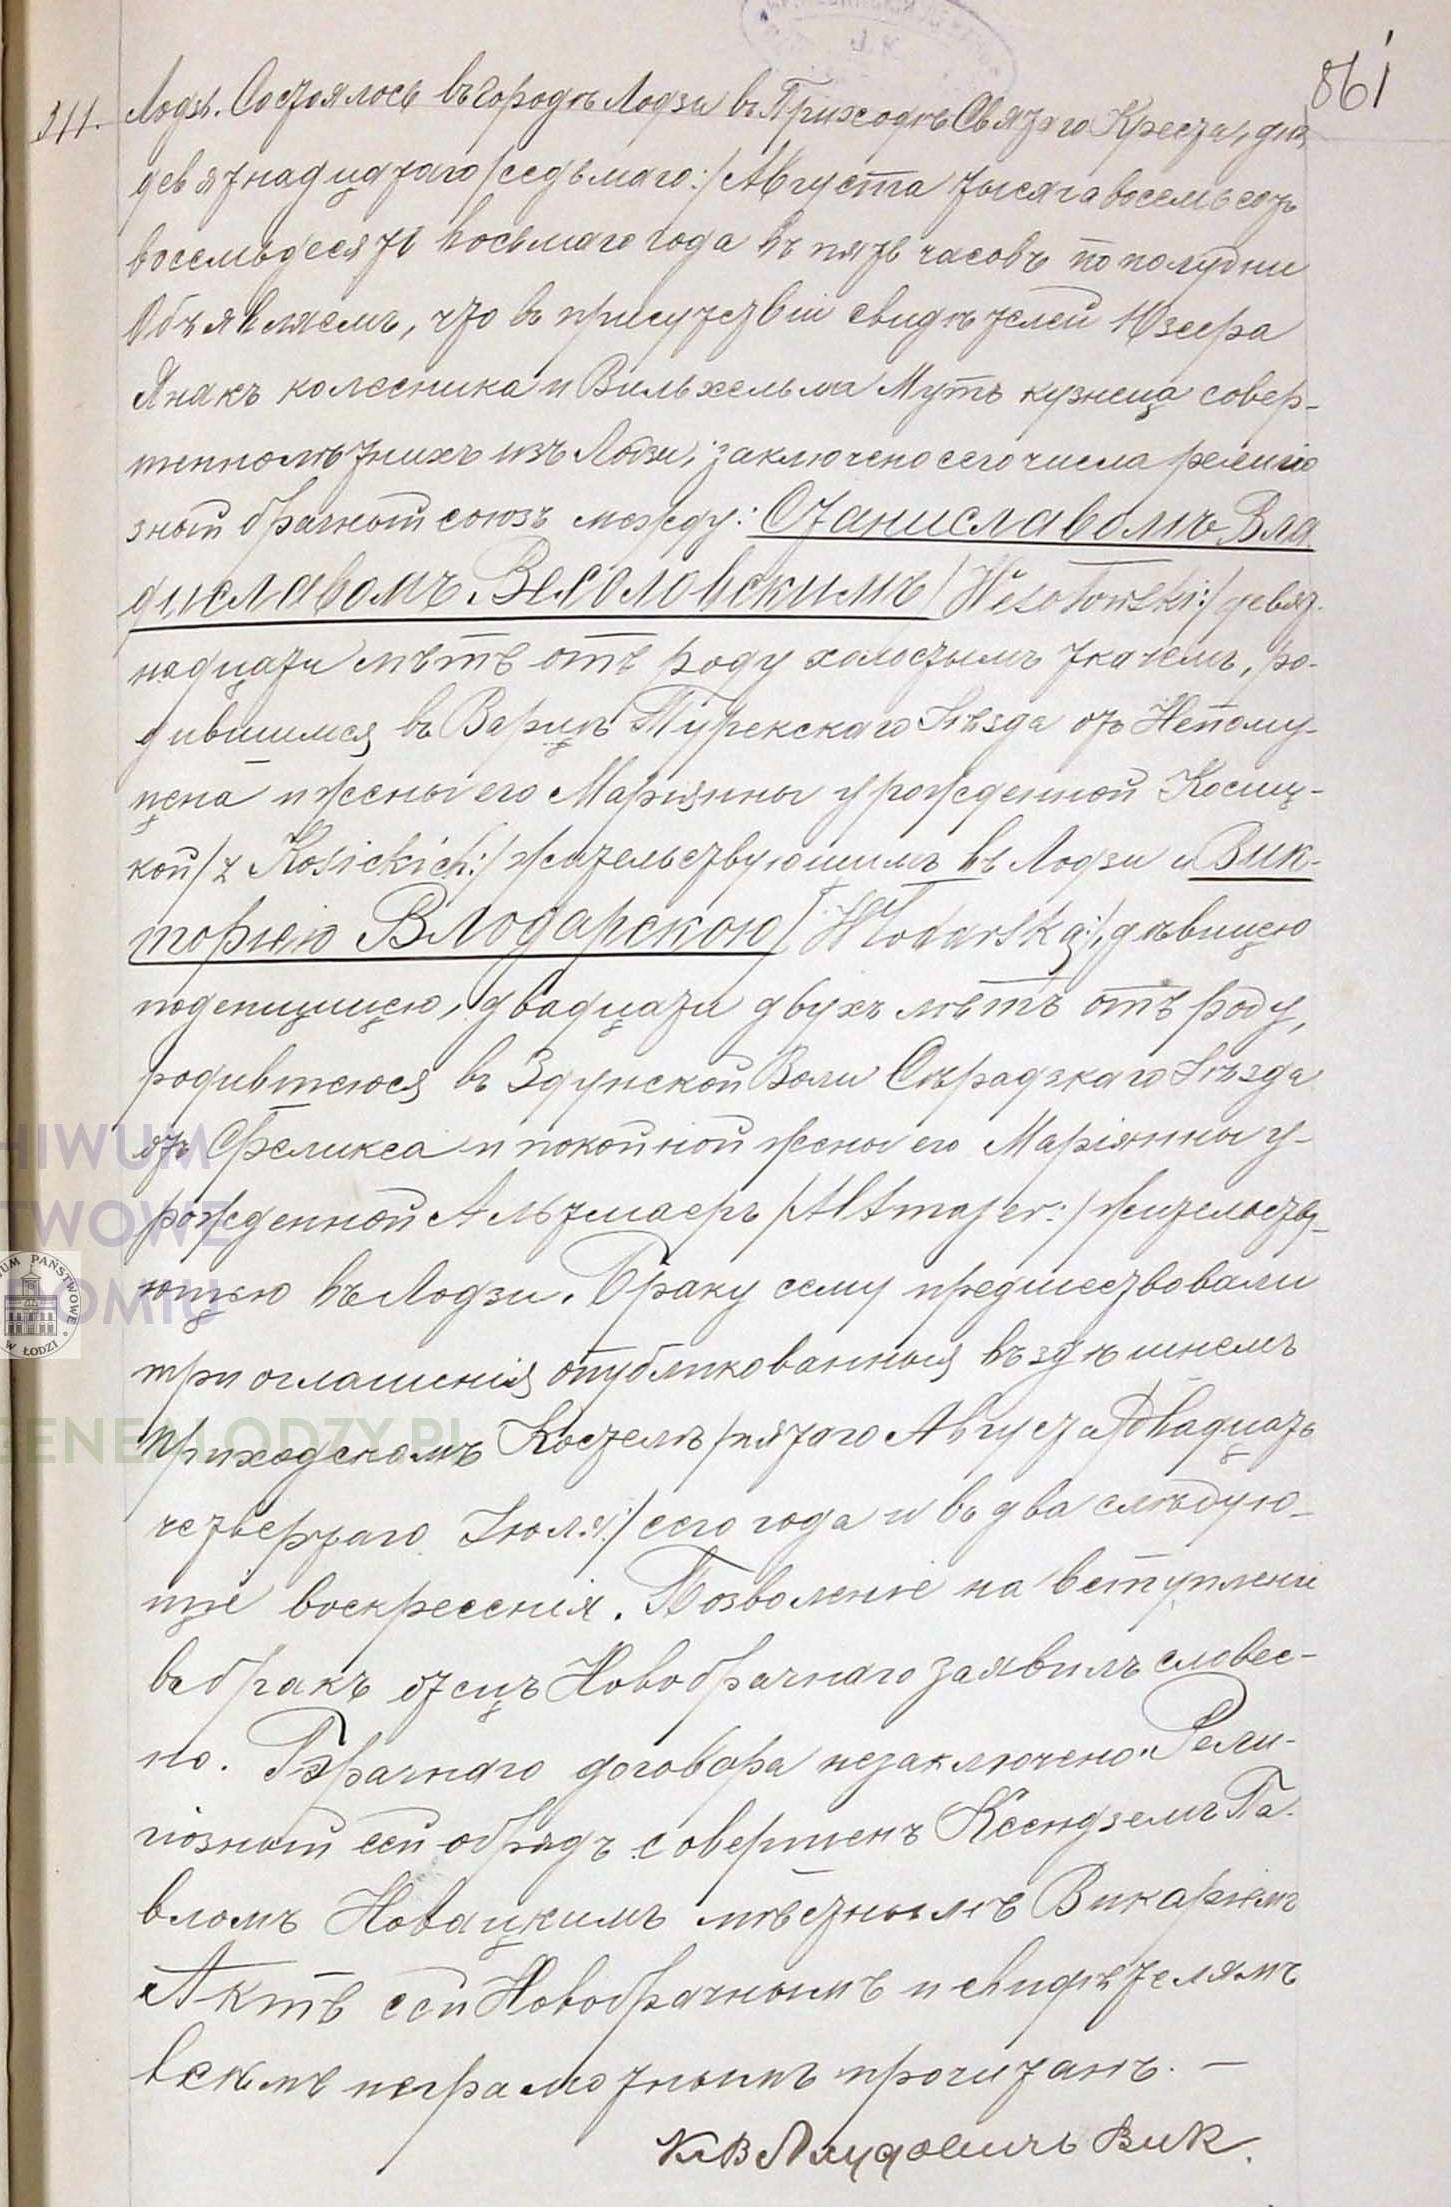 861
311. Лодзь. Состоялось въ городѣ Лодзи въ Приходѣ Святаго Креста, дня
девятнадцатаго /седьмаго:/ Августа тысяча восемьсотъ
восемьдесятъ восьмаго года въ пять часовъ по полудни
Объявляемъ, что въ присутствіи свидѣтелей Юзефа
Янакъ колесника и Вильхельма Мутъ кузнеца совер-
шеннолѣтнихъ изъ Лодзи, заключено сего числа религіо
зный брачный союзъ между: Станиславомъ Вла
диславомъ Веселовскимъ /Wesołowski:/ девят-
надцати лѣтъ отъ роду холостымъ ткачемъ, ро-
дившимся въ Варцѣ Турекскаго Уѣзда отъ Непому-
цена и жены его Маріянны урожденной Косиц-
кой /z Kosickich:/ жительствующимъ въ Лодзи и Вик-
торіею Влодарскою /Włodarska:/, дѣвицею
поденщицею, двадцати двухъ лѣтъ отъ роду,
родившеюся въ Здунской Воли Сѣрадзкаго Уѣзда
отъ Феликса и покойной жены его Маріянны у-
рожденной Альтмаеръ /Altmajer:/ жительству-
ющею въ Лодзи. Браку сему предшествовали
три оглашенія опубликованныя въ здѣшнемъ
приходскомъ Костелѣ /пятаго Августа/ двадцать
четвертаго Іюля:/ сего года и въ два слѣдую-
щіе воскресенія. Позволеніе на вступленіе
въ бракъ отецъ Новобрачнаго заявилъ словес-
но. Брачнаго договора незаключено. Рели-
гіозный сей обрядъ совершенъ Ксендземъ Па-
вломъ Новацкимъ мѣстнымъ Викаріемъ
Актъ сей Новобрачнымъ и свидѣтелямъ
всѣмъ неграмотнымъ прочитанъ. —
Вик.
ARCHIWUM
PAŃSTWOWE
W ŁODZI
GENEALODZY.PL